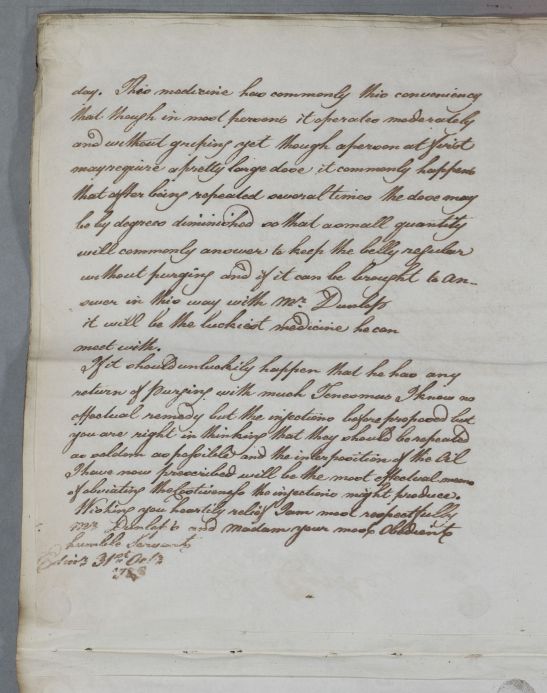 day. This medicine has commonly this conveniency
that though in most persons it operates moderately
and without griping yet though a person at first
may require a pretty large dose it commonly happens
that after being repeated several times the dose may
be by degrees diminished so that a small quantity
will commonly answer to keep the belly regular
without purging and if it can be brought to an-
swer in this way with Mr. Dunlop
it will be the luckiest medicine he can
meet with.
If it should unluckily happen that he has any
return of Purging with much Tenesmus I know no
effectual remedy but the injections before proposed but
you are right in thinking that they should be repeated
as seldom as possible and the interposition of the Oil
I have now prescribed will be the most effectual means
of obviating the Costiveness the injections might produce.
Wishing you heartily relief I am most respectfully
Mr. Dunlop's and Madam your most Obedient
humble Servant
Edinr. 31st Octr.